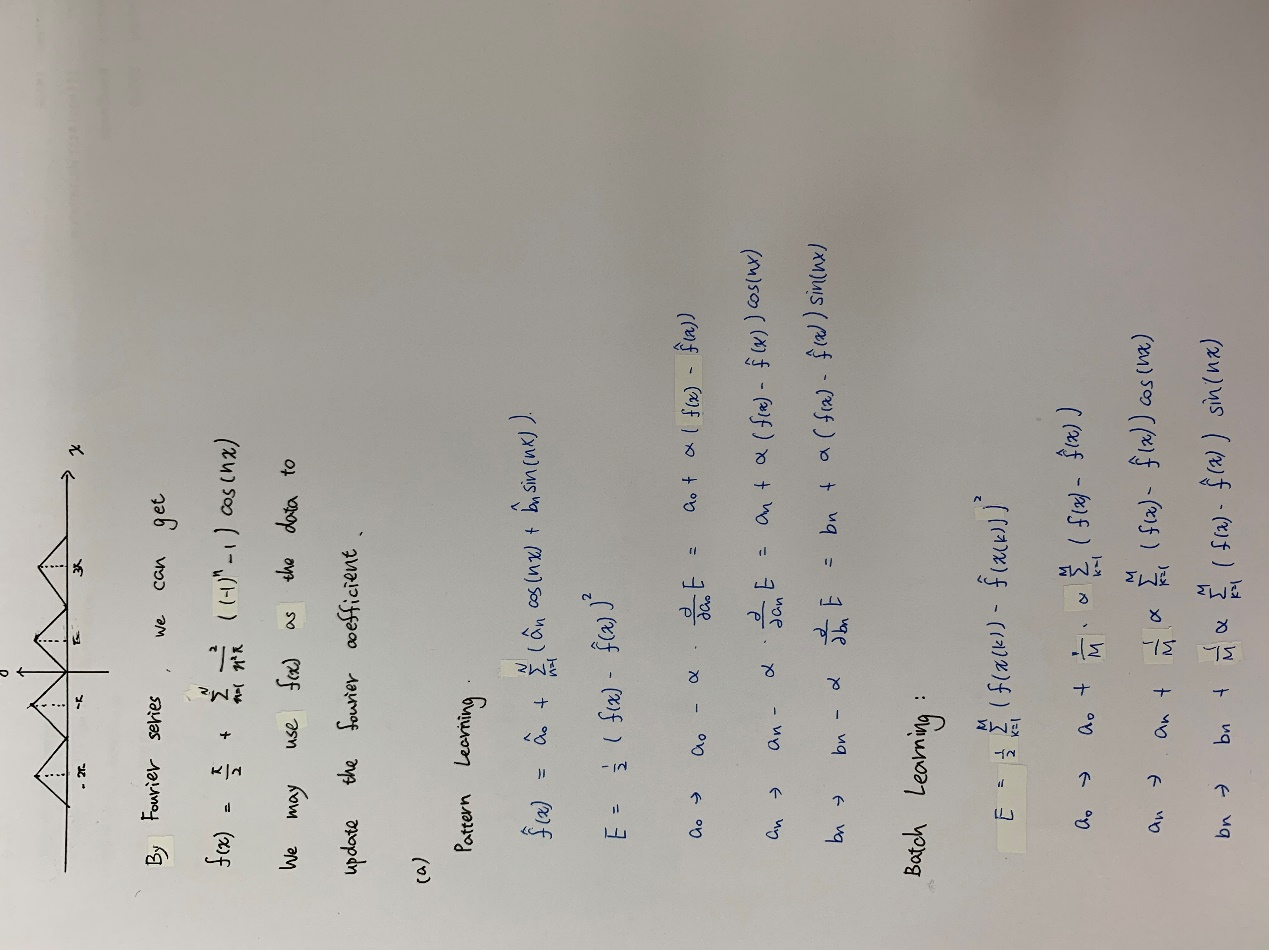 x
-3π -π π 3π
By Fourier series , we can get
f(x) = π/2 + Σ_{n=1}^{N} 2/(n²π) ((-1)ⁿ - 1) cos(nx)
We may use f(x) as the data to
update the fourier coefficient .
(a)
Pattern Learning .
f̂(x) = â₀ + Σ_{n=1}^{N} (âₙ cos(nx) + b̂ₙ sin(nx)).
E = 1/2 (f(x) - f̂(x))²
a₀ → a₀ - α · ∂/∂a₀ E = a₀ + α (f(x) - f̂(x))
aₙ → aₙ - α · ∂/∂aₙ E = aₙ + α (f(x) - f̂(x)) cos(nx)
bₙ → bₙ - α ∂/∂bₙ E = bₙ + α (f(x) - f̂(x)) sin(nx)
Batch Learning :
E = 1/2 Σ_{k=1}^{M} (f(x(k)) - f̂(x(k)))²
a₀ → a₀ + 1/M · α Σ_{k=1}^{M} (f(x) - f̂(x))
aₙ → aₙ + 1/M α Σ_{k=1}^{M} (f(x) - f̂(x)) cos(nx)
bₙ → bₙ + 1/M α Σ_{k=1}^{M} (f(x) - f̂(x)) sin(nx)